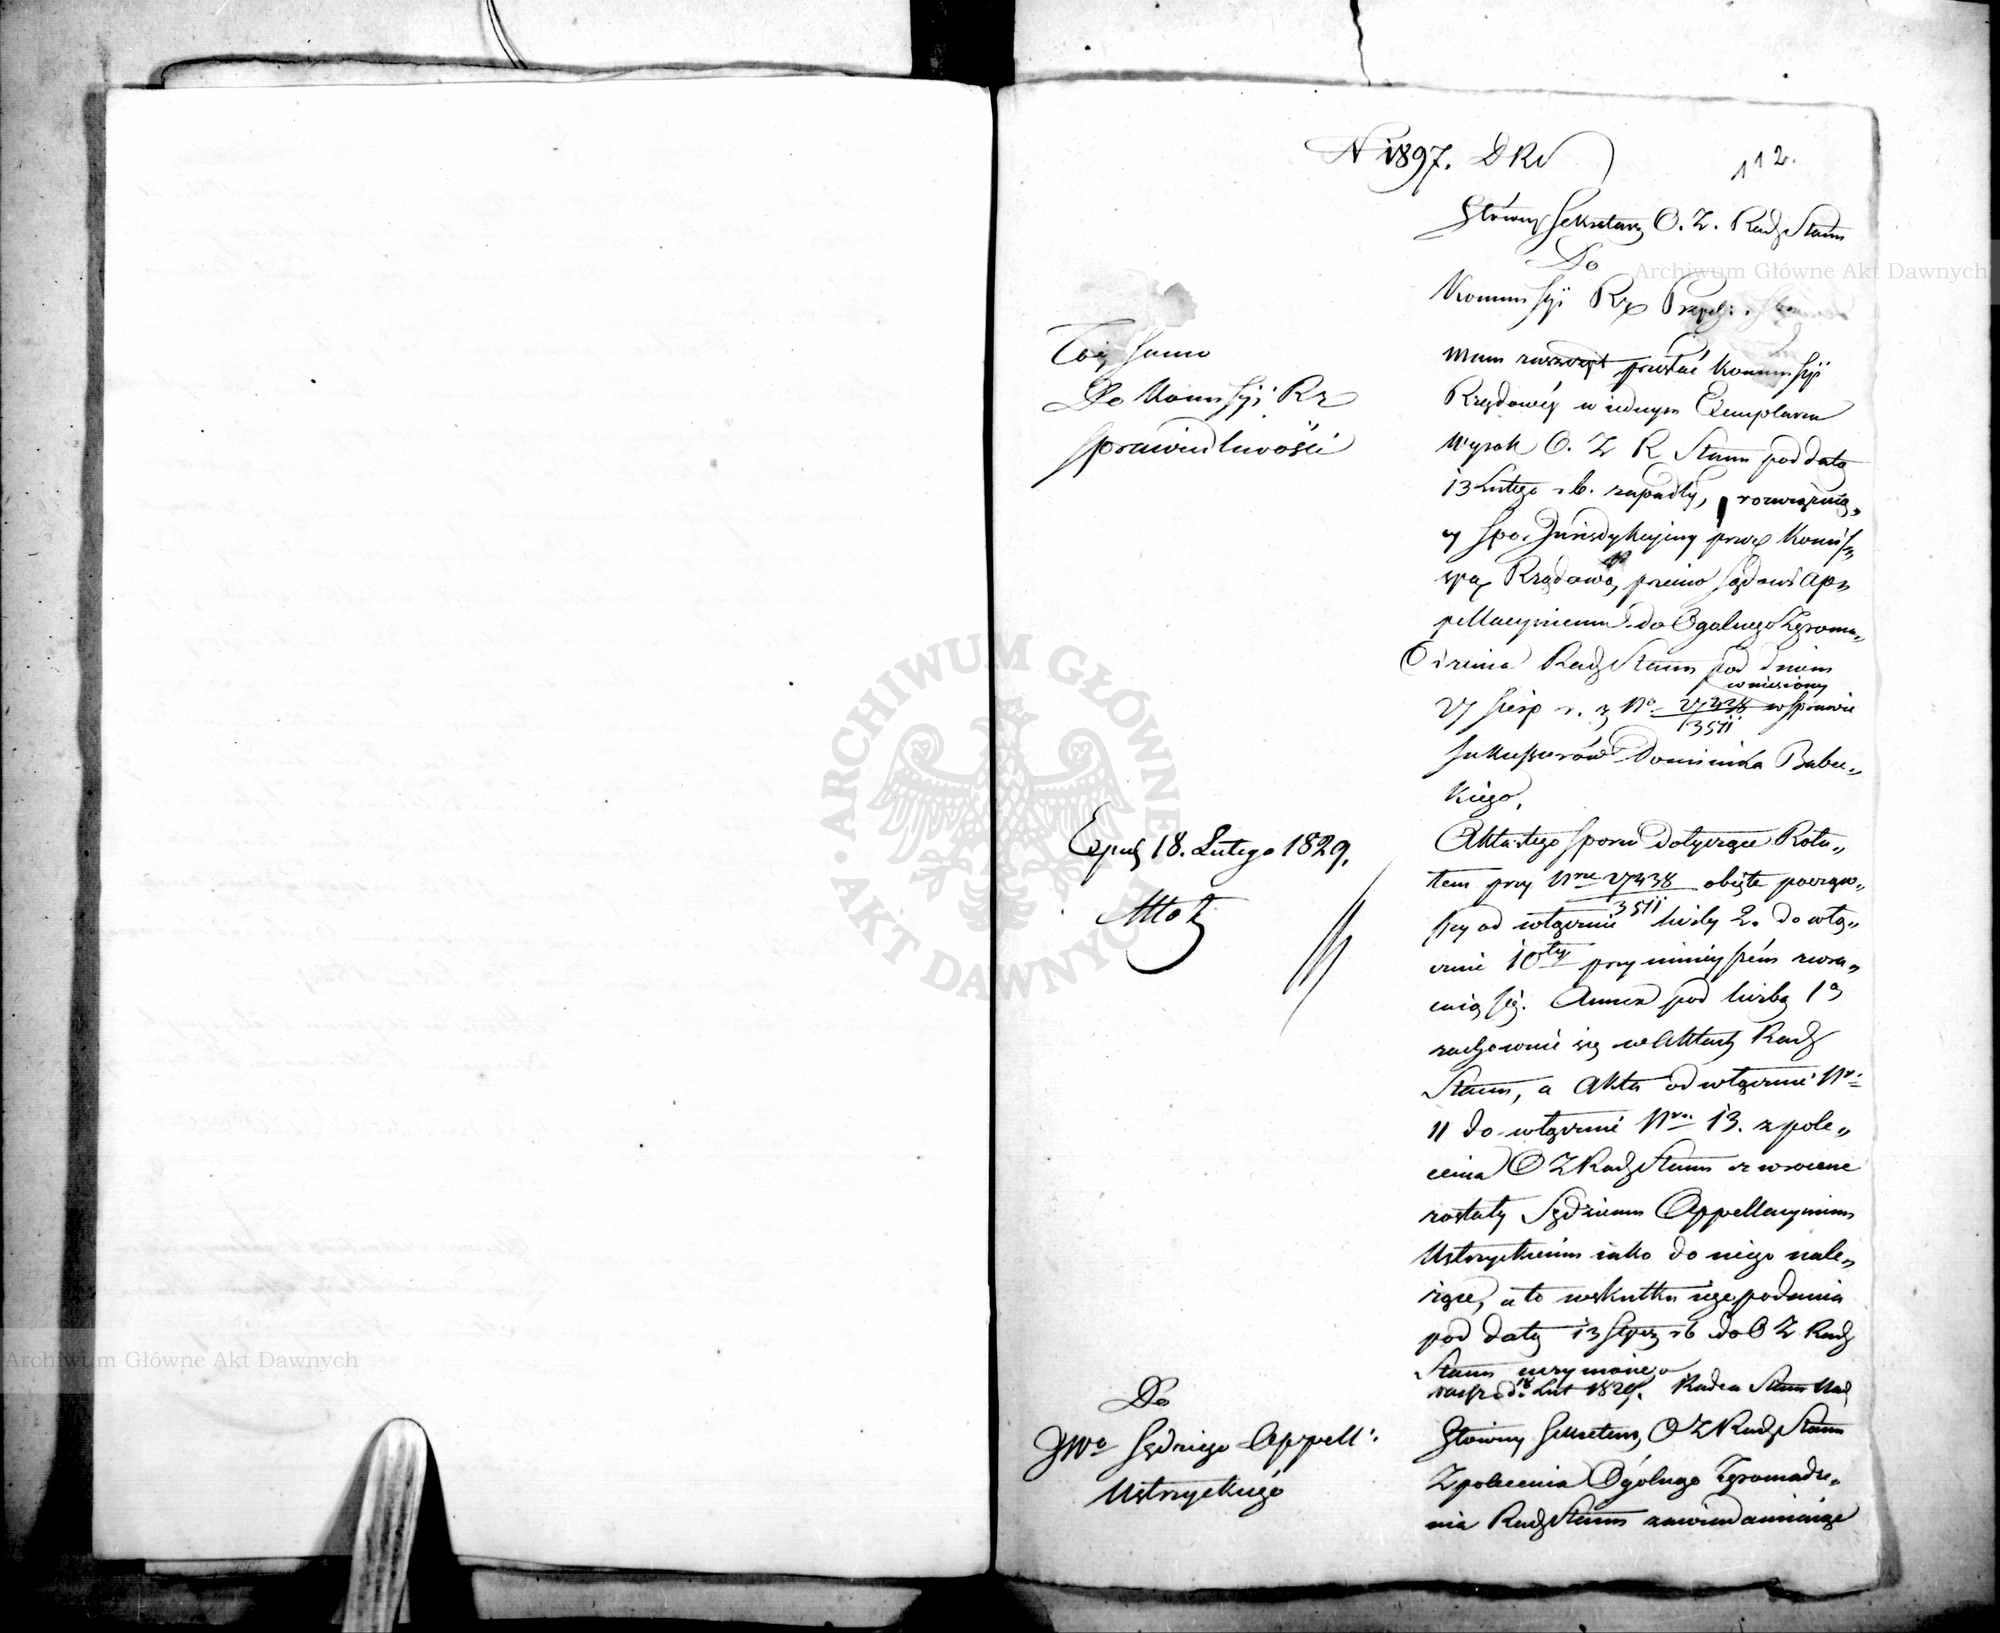 N 1897. D Rs
112.
Główny Sekretarz O. Z. Rady Stanu
Do
Kommissyi Rz Przych: i Skarbu
Toż samo
Do Komissyi Rz
Sprawiedliwości
Mam zaszczyt przesłać Kommissyi
Rządowéy w iednym Exemplarzu
Wyrok O. Z R Stanu pod datą
13 Lutego r. b. zapadły, rozwiązuią„
cy Spór Jurisdykcyiny przez Komis„
syą Rządową, przeciw Sądowi Ap„
pellacyinemu do Ogólnego Zgroma„
dzenia Rady Stanu pod dniem
27 Sierp r. z No 27438/3511 wniesiony w sprawie
Sukcessorów Dominika Babec„
kiego.
Akta tego sporu dotyczące Rotu„
łem przy Nrze 27438/3511 obięte począw„
szy od włącznie liczby 2. do włą„
cznie 10ty przy ninieyszém zwra„
caią się. Annex pod liczbą 1ą
zachowuie się w Aktach Rady
Stanu, a Akta od włącznie Nr:
11 do włącznie Nru 13. z pole„
cenia O Z Rady Stanu zwrócone
zostały Sędziemu Appellacyinemu
Ustrzyckiemu iako do niego nale„
żące, a to w skutku iego podania
pod datą 13 Stycz r b do O Z Rady
Stanu uczynionego
Warsz d. 18 Lut 1829. Radca Stanu Nad
Expedy 18. Lutego 1829.
Do
JWo Sędziego Appell:
Ustrzyckiego
Główny Sekretarz O Z Rady Stanu
Z polecenia Ogólnego Zgromadze„
nia Rady Stanu zawiadamiaiąc
Archiwum Główne Akt Dawnych
Archiwum Główne Akt Dawnych
ARCHIWUM GŁÓWNE AKT DAWNYCH